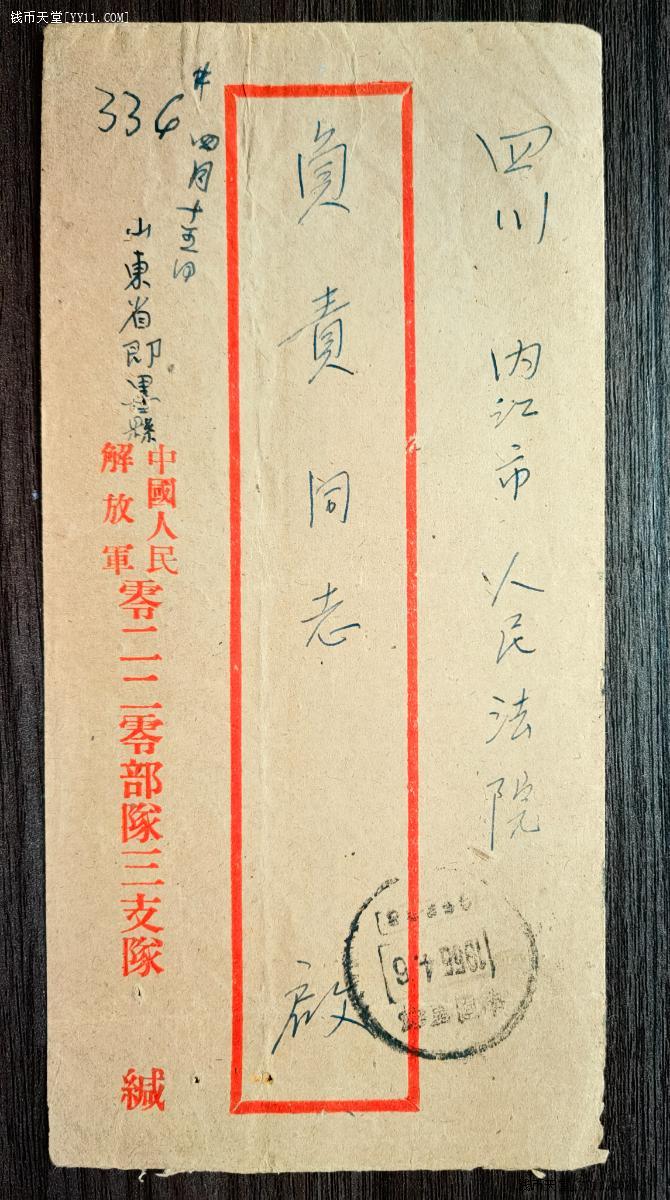 钱币天堂[YY11.COM]
四川 内江市 人民法院
負責同志 啟
# 四月十五日
334
山東省即墨縣
中國人民
解放軍
零二二零部隊三支隊 緘